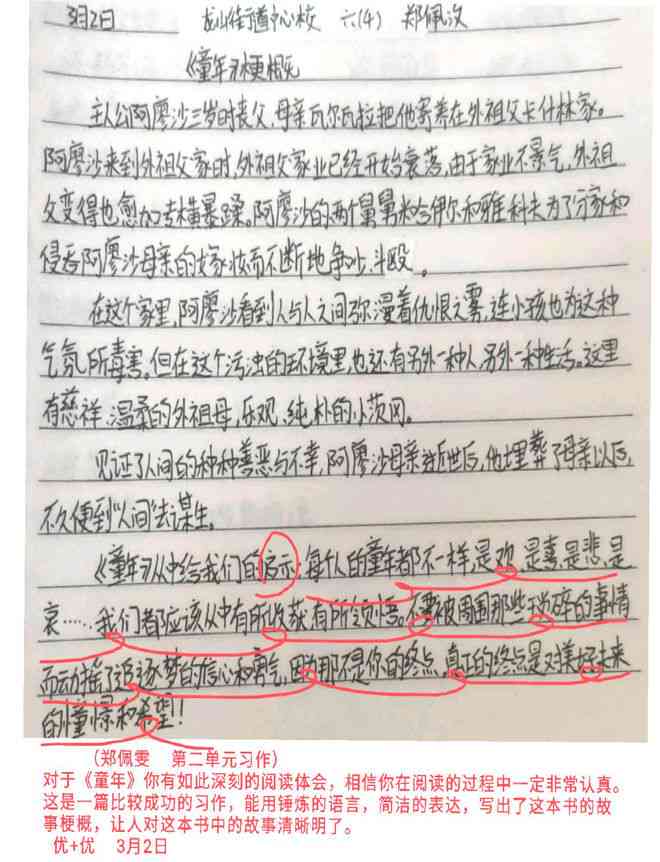 3月2日 龙山街道中心校 六(4) 郑佩汶
《童年》梗概
主人公阿廖沙三岁时丧父,母亲瓦尔瓦拉把他寄养在外祖父卡什林家。
阿廖沙来到外祖父家时,外祖父家业已经开始衰落,由于家业不景气,外祖
父变得也愈加专横暴躁。阿廖沙的两个舅舅米哈伊尔和雅科夫为了分家和
侵吞阿廖沙母亲的嫁妆而不断地争吵、斗殴。
在这个家里,阿廖沙看到人与人之间弥漫着仇恨之雾,连小孩也为这种
气氛所毒害。但在这个污浊的环境里,也还有另外一种人,另外一种生活。这里
有慈祥、温柔的外祖母,乐观、纯朴的小茨冈。
见证了人间的种种善恶与不幸,阿廖沙母亲逝世后,他埋葬了母亲以后,
不久便到“人间”去谋生。
《童年》从中给我们的启示:每个人的童年都不一样,是欢、是喜、是悲、是
哀……我们都应该从中有所收获,有所领悟。不要被周围那些琐碎的事情
而动摇了追逐梦的信心和勇气,因为那不是你的终点,真正的终点是对美好未来
的憧憬和希望!
(郑佩雯 第二单元习作)
对于《童年》你有如此深刻的阅读体会,相信你在阅读的过程中一定非常认真。
这是一篇比较成功的习作,能用锤炼的语言,简洁的表达,写出了这本书的故
事梗概,让人对这本书中的故事清晰明了。
优+优 3月2日